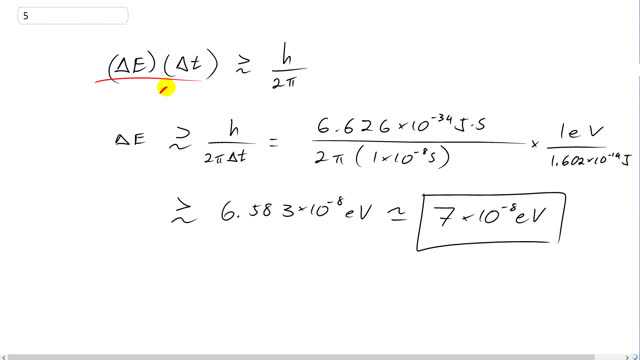 5
(ΔE)(Δt) ≳ h/2π
ΔE ≳ h/2πΔt = 6.626×10⁻³⁴J·s/2π(1×10⁻⁸s) × 1eV/1.602×10⁻¹⁹J
≳ 6.583×10⁻⁸eV ≃ 7×10⁻⁸eV